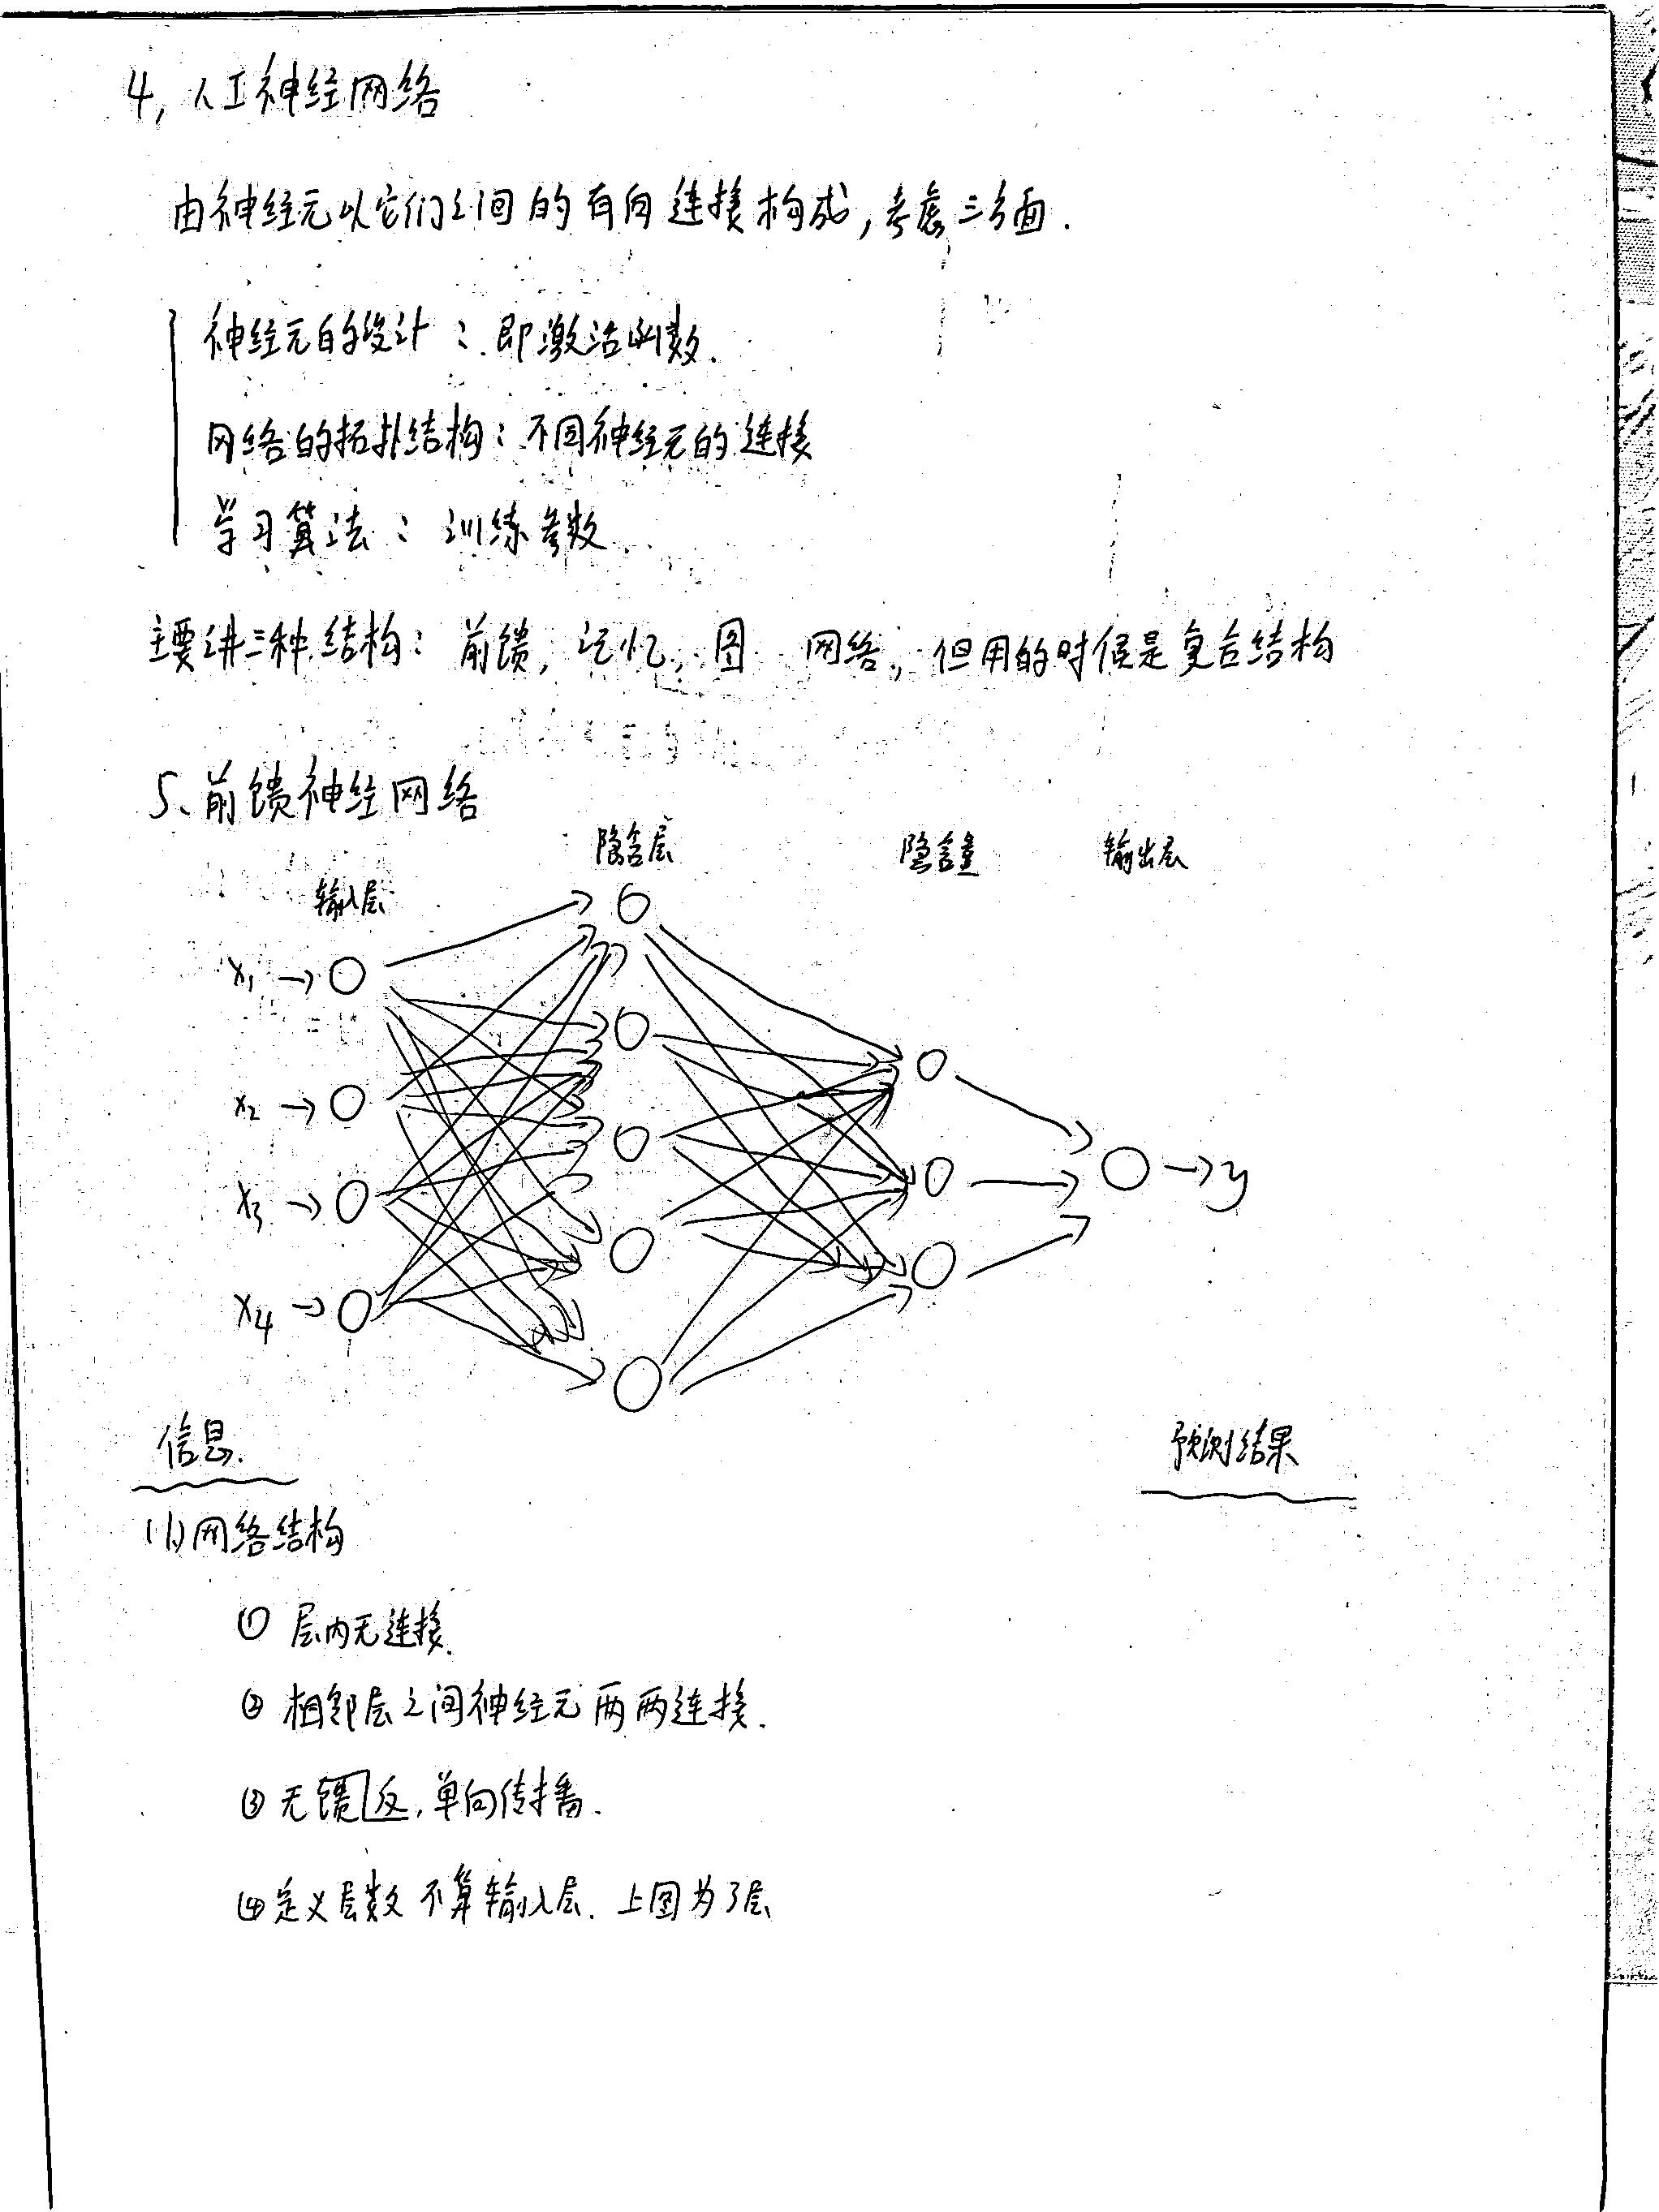 4, 人工神经网络
由神经元以它们之间的有向连接构成,考虑三方面.
神经元的设计:即激活函数.
网络的拓扑结构:不同神经元的连接
学习算法:训练参数.
主要讲三种结构:前馈,记忆,图 网络,但用的时候是复合结构
5、前馈神经网络
输入层 隐含层 隐含层 输出层
x₁
x₂
x₃ y
x₄
信息. 预测结果
(1)网络结构
① 层内无连接.
② 相邻层之间神经元两两连接.
③ 无馈反,单向传播.
④ 定义层数不算输入层.上图为3层